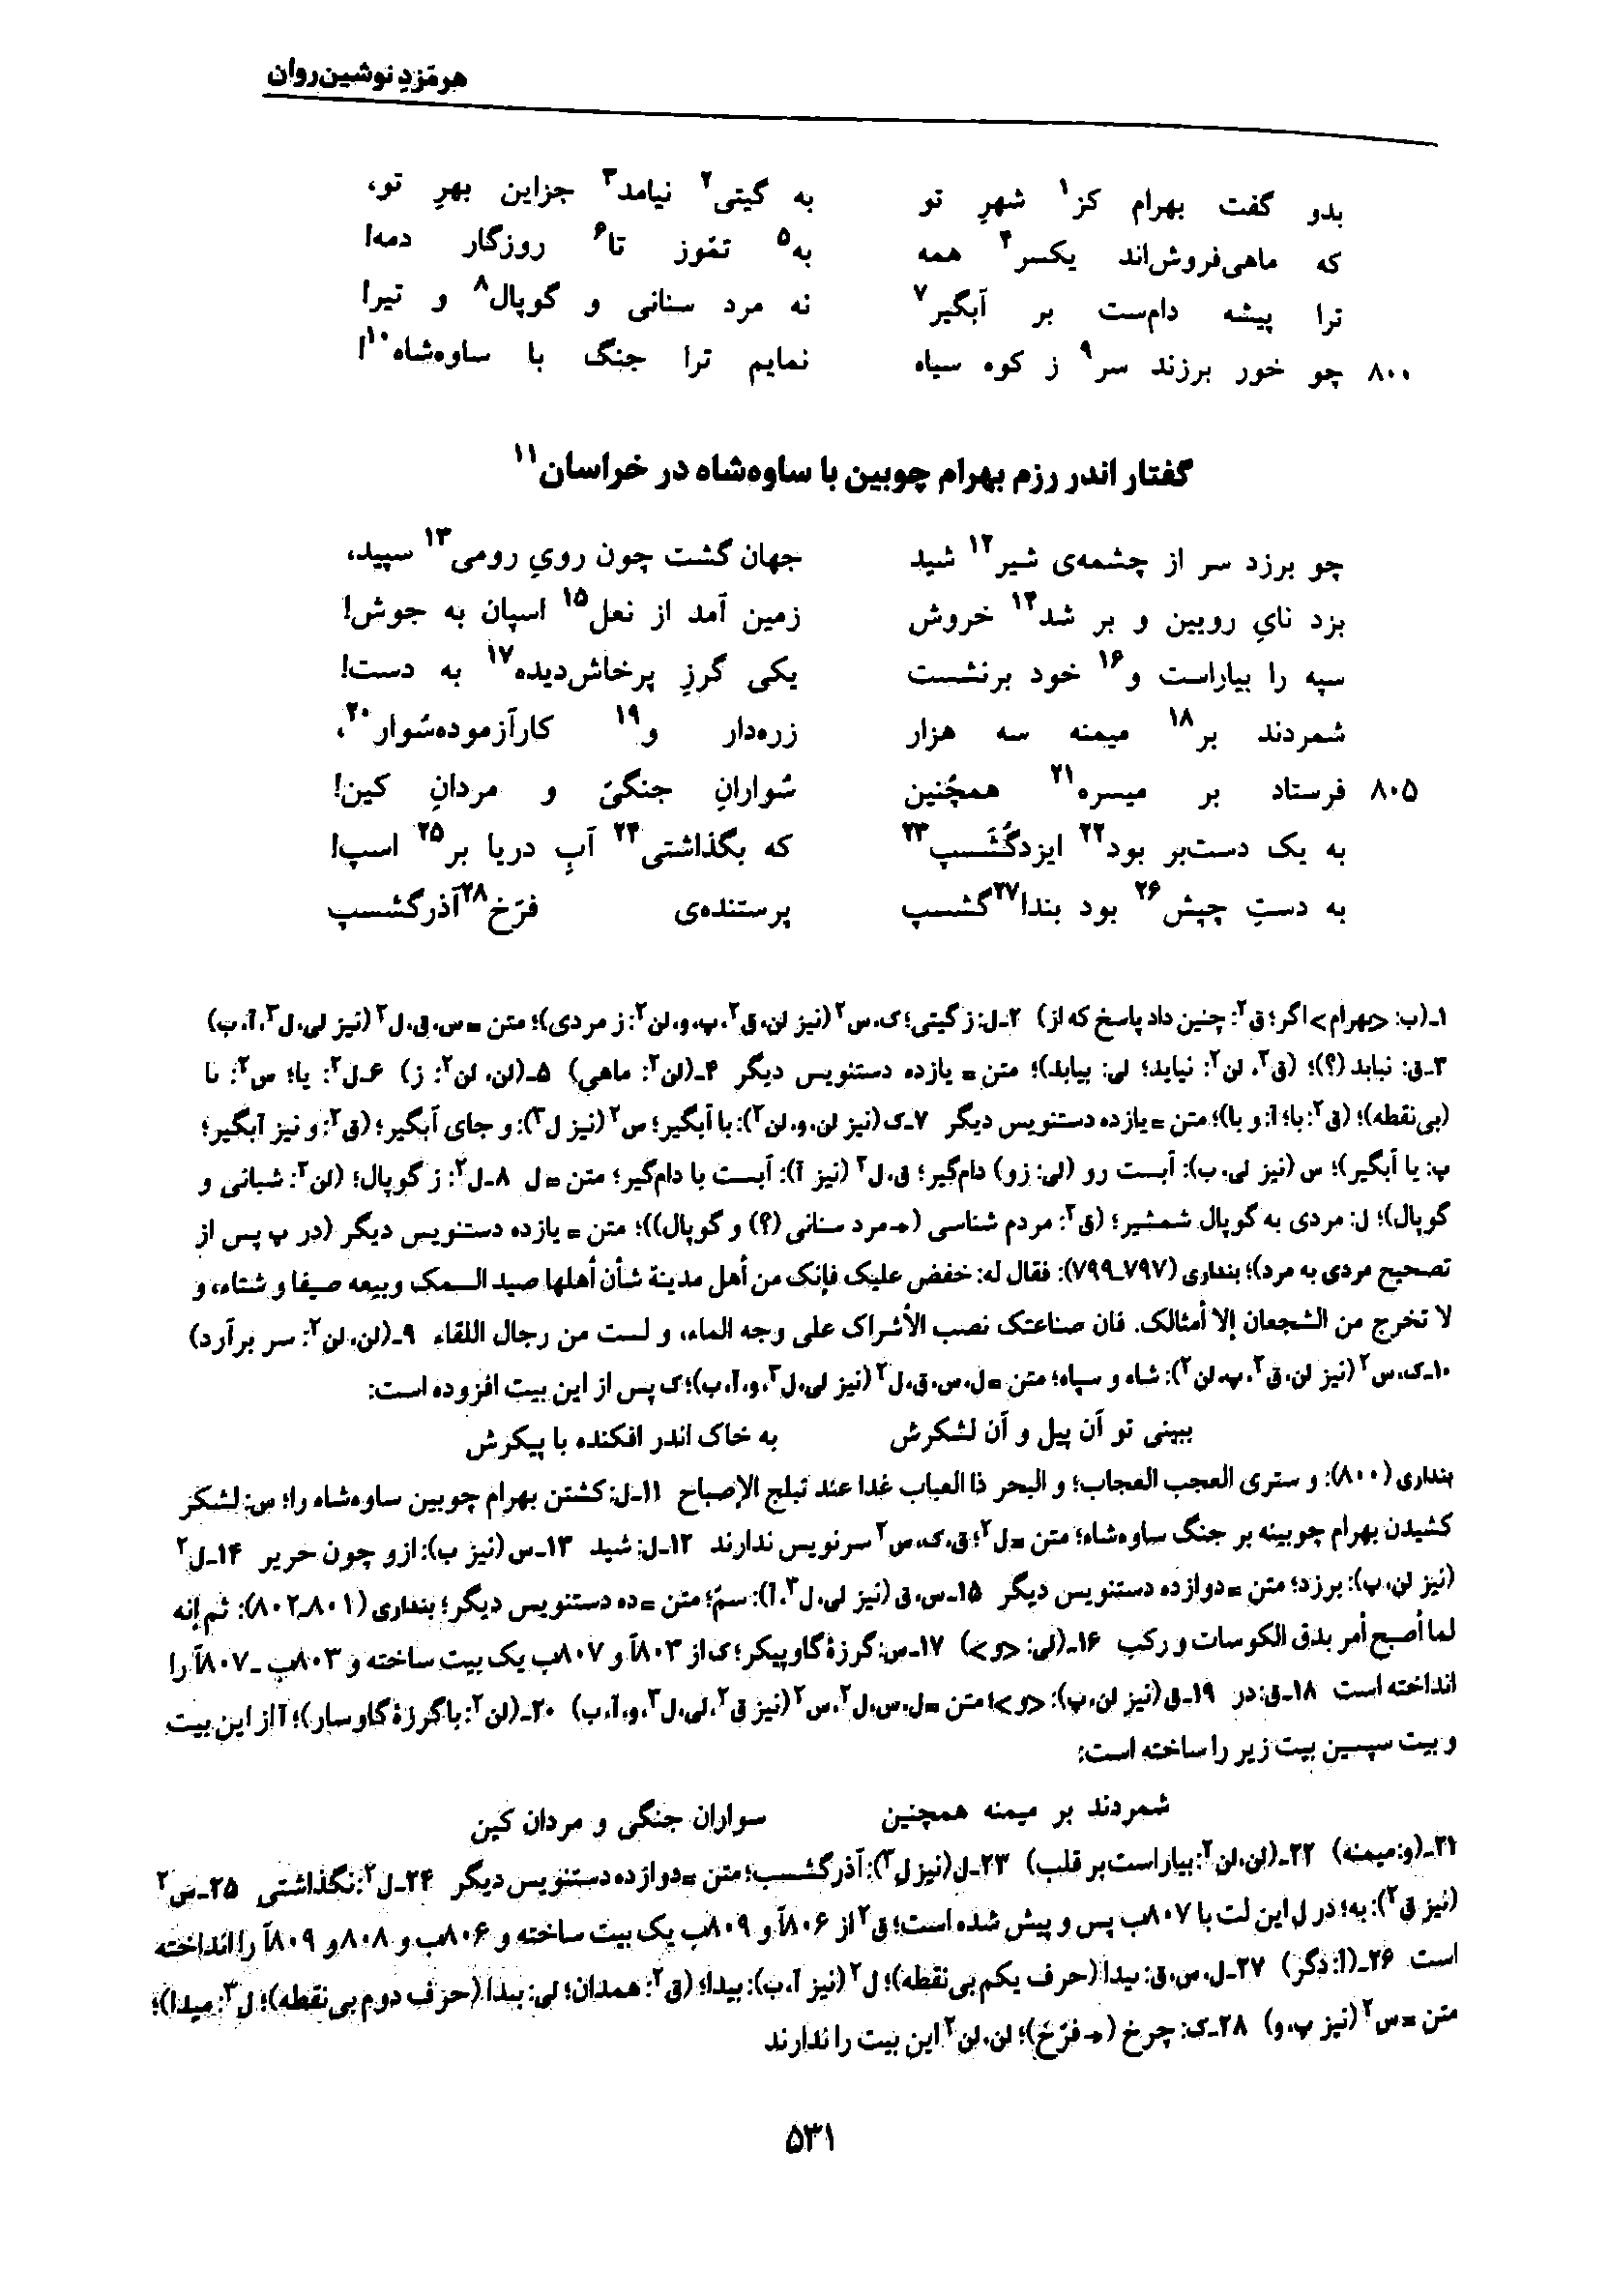 هرمَزدِ نوشین‌روان
بدو گفت بهرام کز۱ شهرِ تو به گیتی۲ نیامد۳ جزاین بهرِ تو،
که ماهی‌فروش‌اند یکسر۴ همه به۵ تمّوز تا۶ روزگار دمه!
ترا پیشه دام‌ست بر آبگیر۷ نه مرد سنانی و گوپال۸ و تیر!
۸۰۰ چو خور برزند سر۹ ز کوه سیاه نمایم ترا جنگ با ساوه‌شاه۱۰!
گفتار اندر رزم بهرام چوبین با ساوه‌شاه در خراسان۱۱
چو برزد سر از چشمه‌ی شیر۱۲ شید جهان گشت چون رویِ رومی۱۳ سپید،
بزد نایِ رویین و بر شد۱۴ خروش زمین آمد از نعل۱۵ اسپان به جوش!
سپه را بیاراست و۱۶ خود برنشست یکی گرزِ پرخاش‌دیده۱۷ به دست!
شمردند بر۱۸ میمنه سه هزار زره‌دار و۱۹ کارآزموده‌سُوار۲۰،
۸۰۵ فرستاد بر میسره۲۱ همچُنین سُوارانِ جنگیّ و مردانِ کین!
به یک دست‌بر بود۲۲ ایزدگُشَسپ۲۳ که بگذاشتی۲۴ آبِ دریا بر۲۵ اسپ!
به دستِ چپش۲۶ بود بندا۲۷گشسپ پرستنده‌ی فرّخ۲۸آذرگشسپ
۱ـ(ب: <بهرام>اگر؛ ق۲: چنین داد پاسخ که از) ۲ـل: ز گیتی؛ ک، س۲ (نیز لن، ق۲، پ، و، لن۲: ز مردی)؛ متن = س، ق، ل۲ (نیز لی، ل۳، آ، ب)
۳ـق: نباید (؟)؛ (ق۲، لن۲: نیاید؛ لی: بیابد)؛ متن = یازده دستنویس دیگر ۴ـ(لن۲: ماهی) ۵ـ(لن، لن۲: ز) ۶ـل۲: یا؛ س۲: ىا
(بی‌نقطه)؛ (ق۲: با؛ آ: و با)؛ متن = یازده دستنویس دیگر ۷ـک (نیز لن، و، لن۲): با آبگیر؛ س۲ (نیز ل۳): و جای آبگیر؛ (ق۲: و نیز آبگیر؛
پ: یا آبگیر)؛ س (نیز لی، ب): آبست رو (لی: زو) دام‌گیر؛ ق، ل۲ (نیز آ): آبست با دام‌گیر؛ متن = ل ۸ـل۲: ز گوپال؛ (لن۲: شبانی و
گوپال)؛ ل: مردی به گوپال شمشیر؛ (ق۲: مردم شناسی (← مرد سنانی (؟) و گوپال))؛ متن = یازده دستنویس دیگر (در پ پس از
تصحیح مردی به مرد)؛ بنداری (۷۹۷ـ۷۹۹): فقال له: خفض علیک فإنک من أهل مدینة شأن أهلها صید السمک وبیعه صیفا و شتاء، و
لا تخرج من الشجعان إلا أمثالک. فان صناعتک نصب الأشراک علی وجه الماء، و لست من رجال اللقاء ۹ـ(لن، لن۲: سر برآرد)
۱۰ـک، س۲ (نیز لن، ق۲، پ، لن۲): شاه و سپاه؛ متن = ل، س، ق، ل۲ (نیز لی، ل۳، و، آ، ب)؛ ک پس از این بیت افزوده است:
ببینی تو آن پیل و آن لشکرش به خاک اندر افکنده با پیکرش
بنداری (۸۰۰): و ستری العجب العجاب؛ و البحر ذا العباب غدا عند تبلج الإصباح ۱۱ـل: کشتن بهرام چوبین ساوه‌شاه را؛ س: لشکر
کشیدن بهرام چوبینه بر جنگ ساوه‌شاه؛ متن = ل۲؛ ق، ک، س۲ سرنویس ندارند ۱۲ـل: شبد ۱۳ـس (نیز ب): ازو چون حریر ۱۴ـل۲
(نیز لن، پ): برزد؛ متن = دوازده دستنویس دیگر ۱۵ـس، ق (نیز لی، ل۳، آ): سمّ؛ متن = ده دستنویس دیگر؛ بنداری (۸۰۱ـ۸۰۲): ثم إنه
لما أصبح أمر بدق الکوسات و رکب ۱۶ـ(لی: <و>) ۱۷ـس: گرزهٔ گاوپیکر؛ ک از ۸۰۳آ و ۸۰۷ب یک بیت ساخته و ۸۰۳ب ـ ۸۰۷آ را
انداخته است ۱۸ـق: در ۱۹ـق (نیز لن، پ): <و>؛ متن = ل، س، ل۲، س۲ (نیز ق۲، لی، ل۳، و، آ، ب) ۲۰ـ(لن۲: با گرزهٔ گاوسار)؛ آ از این بیت
و بیت سپسین بیت زیر را ساخته است:
شمردند بر میمنه همچنین سواران جنگی و مردان کین
۲۱ـ(و: میمنه) ۲۲ـ(لن، لن۲: بیاراست بر قلب) ۲۳ـل (نیز ل۳): آذرگشسب؛ متن = دوازده دستنویس دیگر ۲۴ـل۲: نگذاشتی ۲۵ـس۲
(نیز ق۲): به؛ در ل این لت با ۸۰۷ب پس و پیش شده است؛ ق۲ از ۸۰۶آ و ۸۰۹ب یک بیت ساخته و ۸۰۶ب و ۸۰۸ و ۸۰۹آ را انداخته
است ۲۶ـ(آ: دگر) ۲۷ـل، س، ق: ىیدا (حرف یکم بی‌نقطه)؛ ل۲ (نیز آ، ب): بیدا؛ (ق۲: همدان؛ لی: بىدا (حرف دوم بی‌نقطه)؛ ل۳: میدا)؛
متن = س۲ (نیز پ، و) ۲۸ـک: چرخ (← فرّخ)؛ لن، لن۲ این بیت را ندارند
۵۳۱